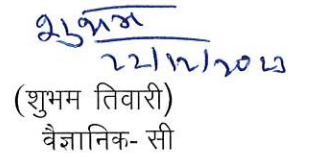 शुभम
22/12/2023
(शुभम तिवारी)
वैज्ञानिक- सी